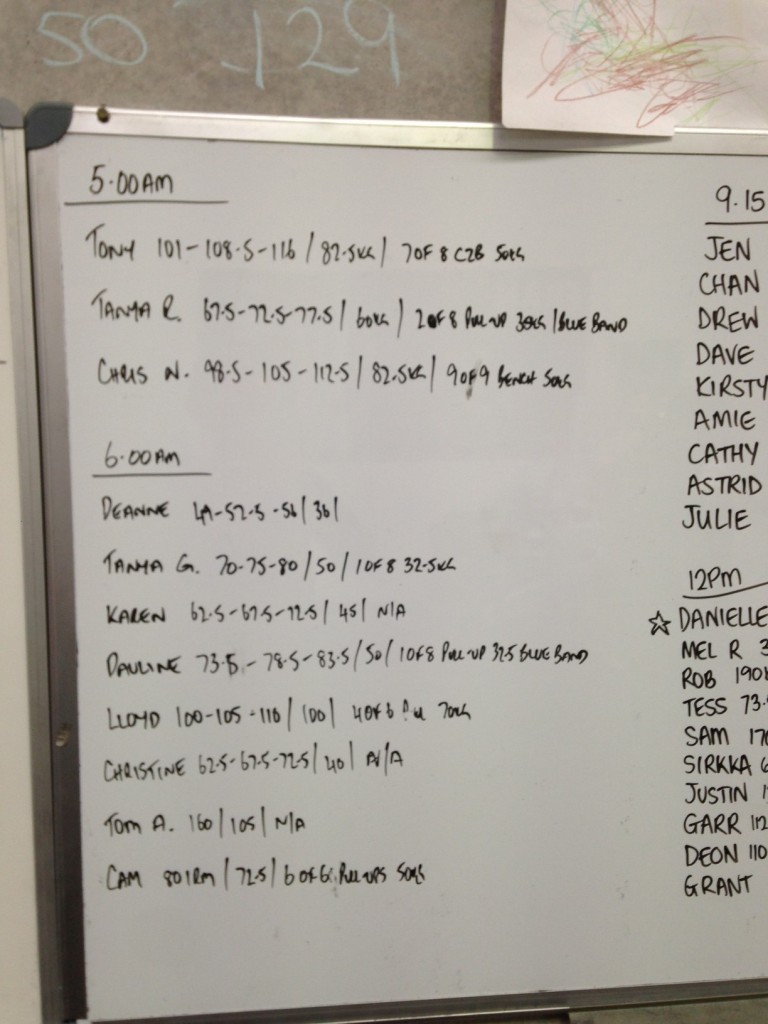 50 129
5.00AM
TONY 101-108.5-116 / 82.5KG / 7 OF 8 C2B 50KG
TANYA R. 67.5-72.5-77.5 / 60KG / 2 OF 8 PULL-UP 30KG / BLUE BAND
CHRIS N. 98.5-105-112.5 / 82.5KG / 9 OF 9 BENCH 50KG
6.00AM
DEANNE 49-52.5-56 / 36 /
TANYA G. 70-75-80 / 50 / 1 OF 8 32.5KG
KAREN 62.5-67.5-72.5 / 45 / N/A
PAULINE 73.5-78.5-83.5 / 50 / 1 OF 8 PULL-UP 32.5 BLUE BAND
LLOYD 100-105-110 / 100 / 4 OF 6 70KG
CHRISTINE 62.5-67.5-72.5 / 40 / N/A
TOM A. 160 / 105 / N/A
CAM 80 1RM / 72.5 / 6 OF 6 PULL-UPS 50KG
9.15
JEN
CHAN
DREW
DAVE
KIRSTY
AMIE
CATHY
ASTRID
JULIE
12PM
☆ DANIELLE
MEL R 3
ROB 190
TESS 73.
SAM 17
SIRKKA 6
JUSTIN 1
GARR 112
DEON 110
GRANT